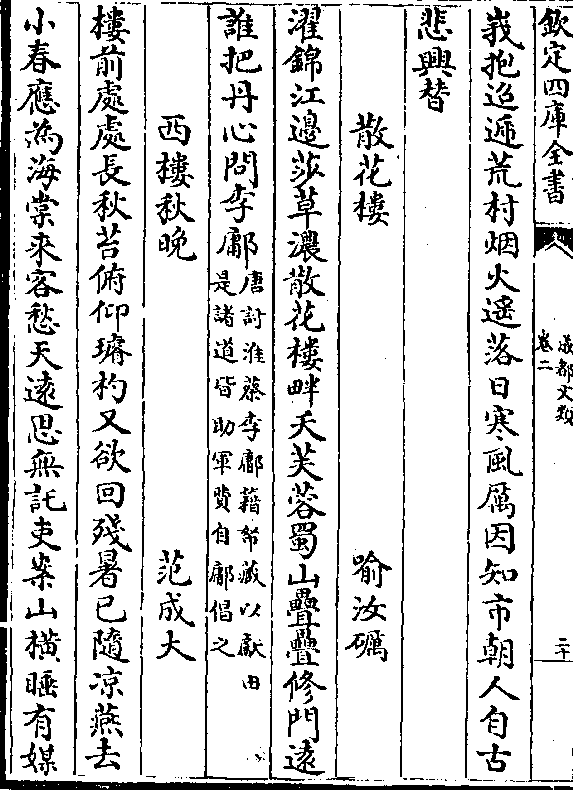 欽定四庫全書
卷二
成都文類
二十
峩抱迢遞荒村烟火遥落日寒風厲因知市朝人自古
悲興替
散花樓 喻汝礪
濯錦江邊莎草濃散花樓畔夭芙蓉蜀山疊疊修門遠
誰把丹心問李鄘唐討淮蔡李鄘藉帑藏以獻由
是諸道皆助軍費自鄘倡之
西樓秋晚 范成大
樓前處處長秋苔俯仰璿杓又欲回殘暑已隨凉燕去
小春應為海棠來客愁天遠思無託吏案山横睡有媒